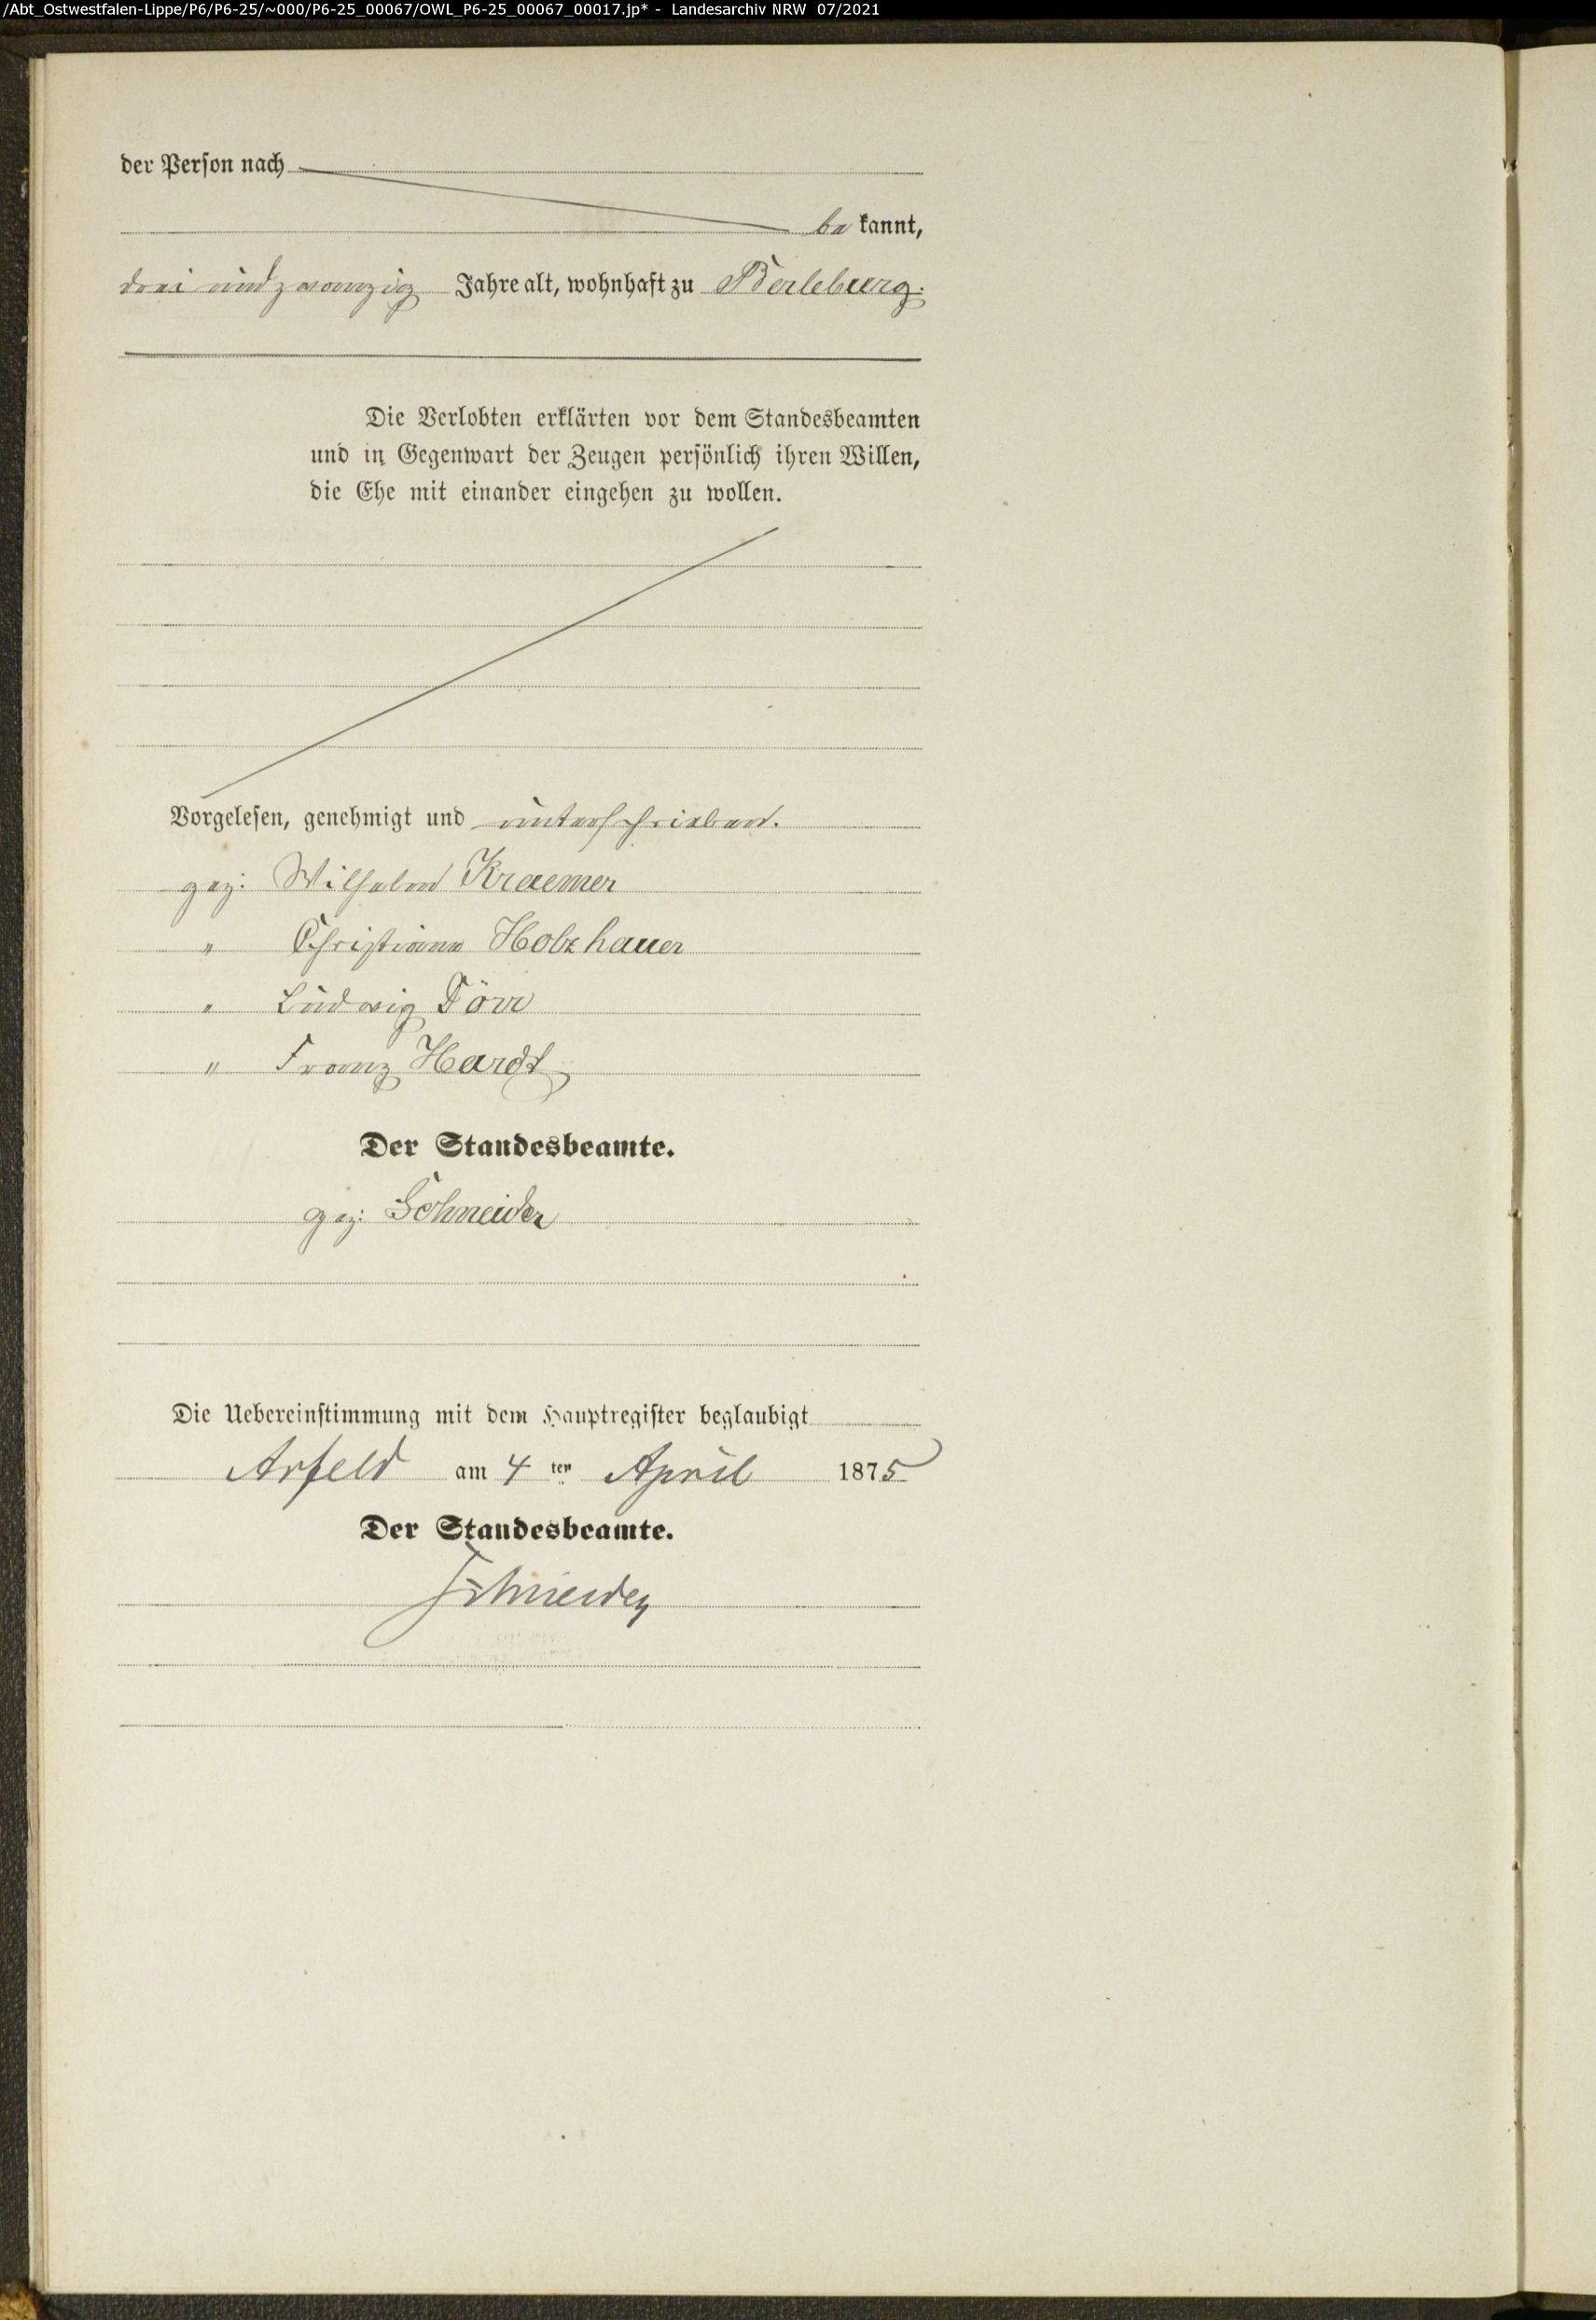 /Abt_Ostwestfalen-Lippe/P6/P6-25/~000/P6-25_00067/OWL_P6-25_00067_00017.jp* - Landesarchiv NRW 07/2021
der Person nach
be kannt,
drei und zwanzig Jahre alt, wohnhaft zu Berleburg.
Die Verlobten erklärten vor dem Standesbeamten
und in Gegenwart der Zeugen persönlich ihren Willen,
die Ehe mit einander eingehen zu wollen.
Vorgelesen, genehmigt und unterschrieben.
gez: Wilhelm Kraemer
" Christiane Holzhauer
" Ludwig Dörr
" Franz Hardt
Der Standesbeamte.
gez: Schneider
Die Uebereinstimmung mit dem Hauptregister beglaubigt
Arfeld am 4 ten April 1875
Der Standesbeamte.
Schneider